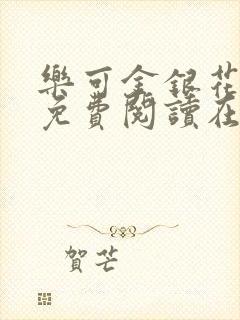 樂可金銀花
免費閱讀在
賀芒